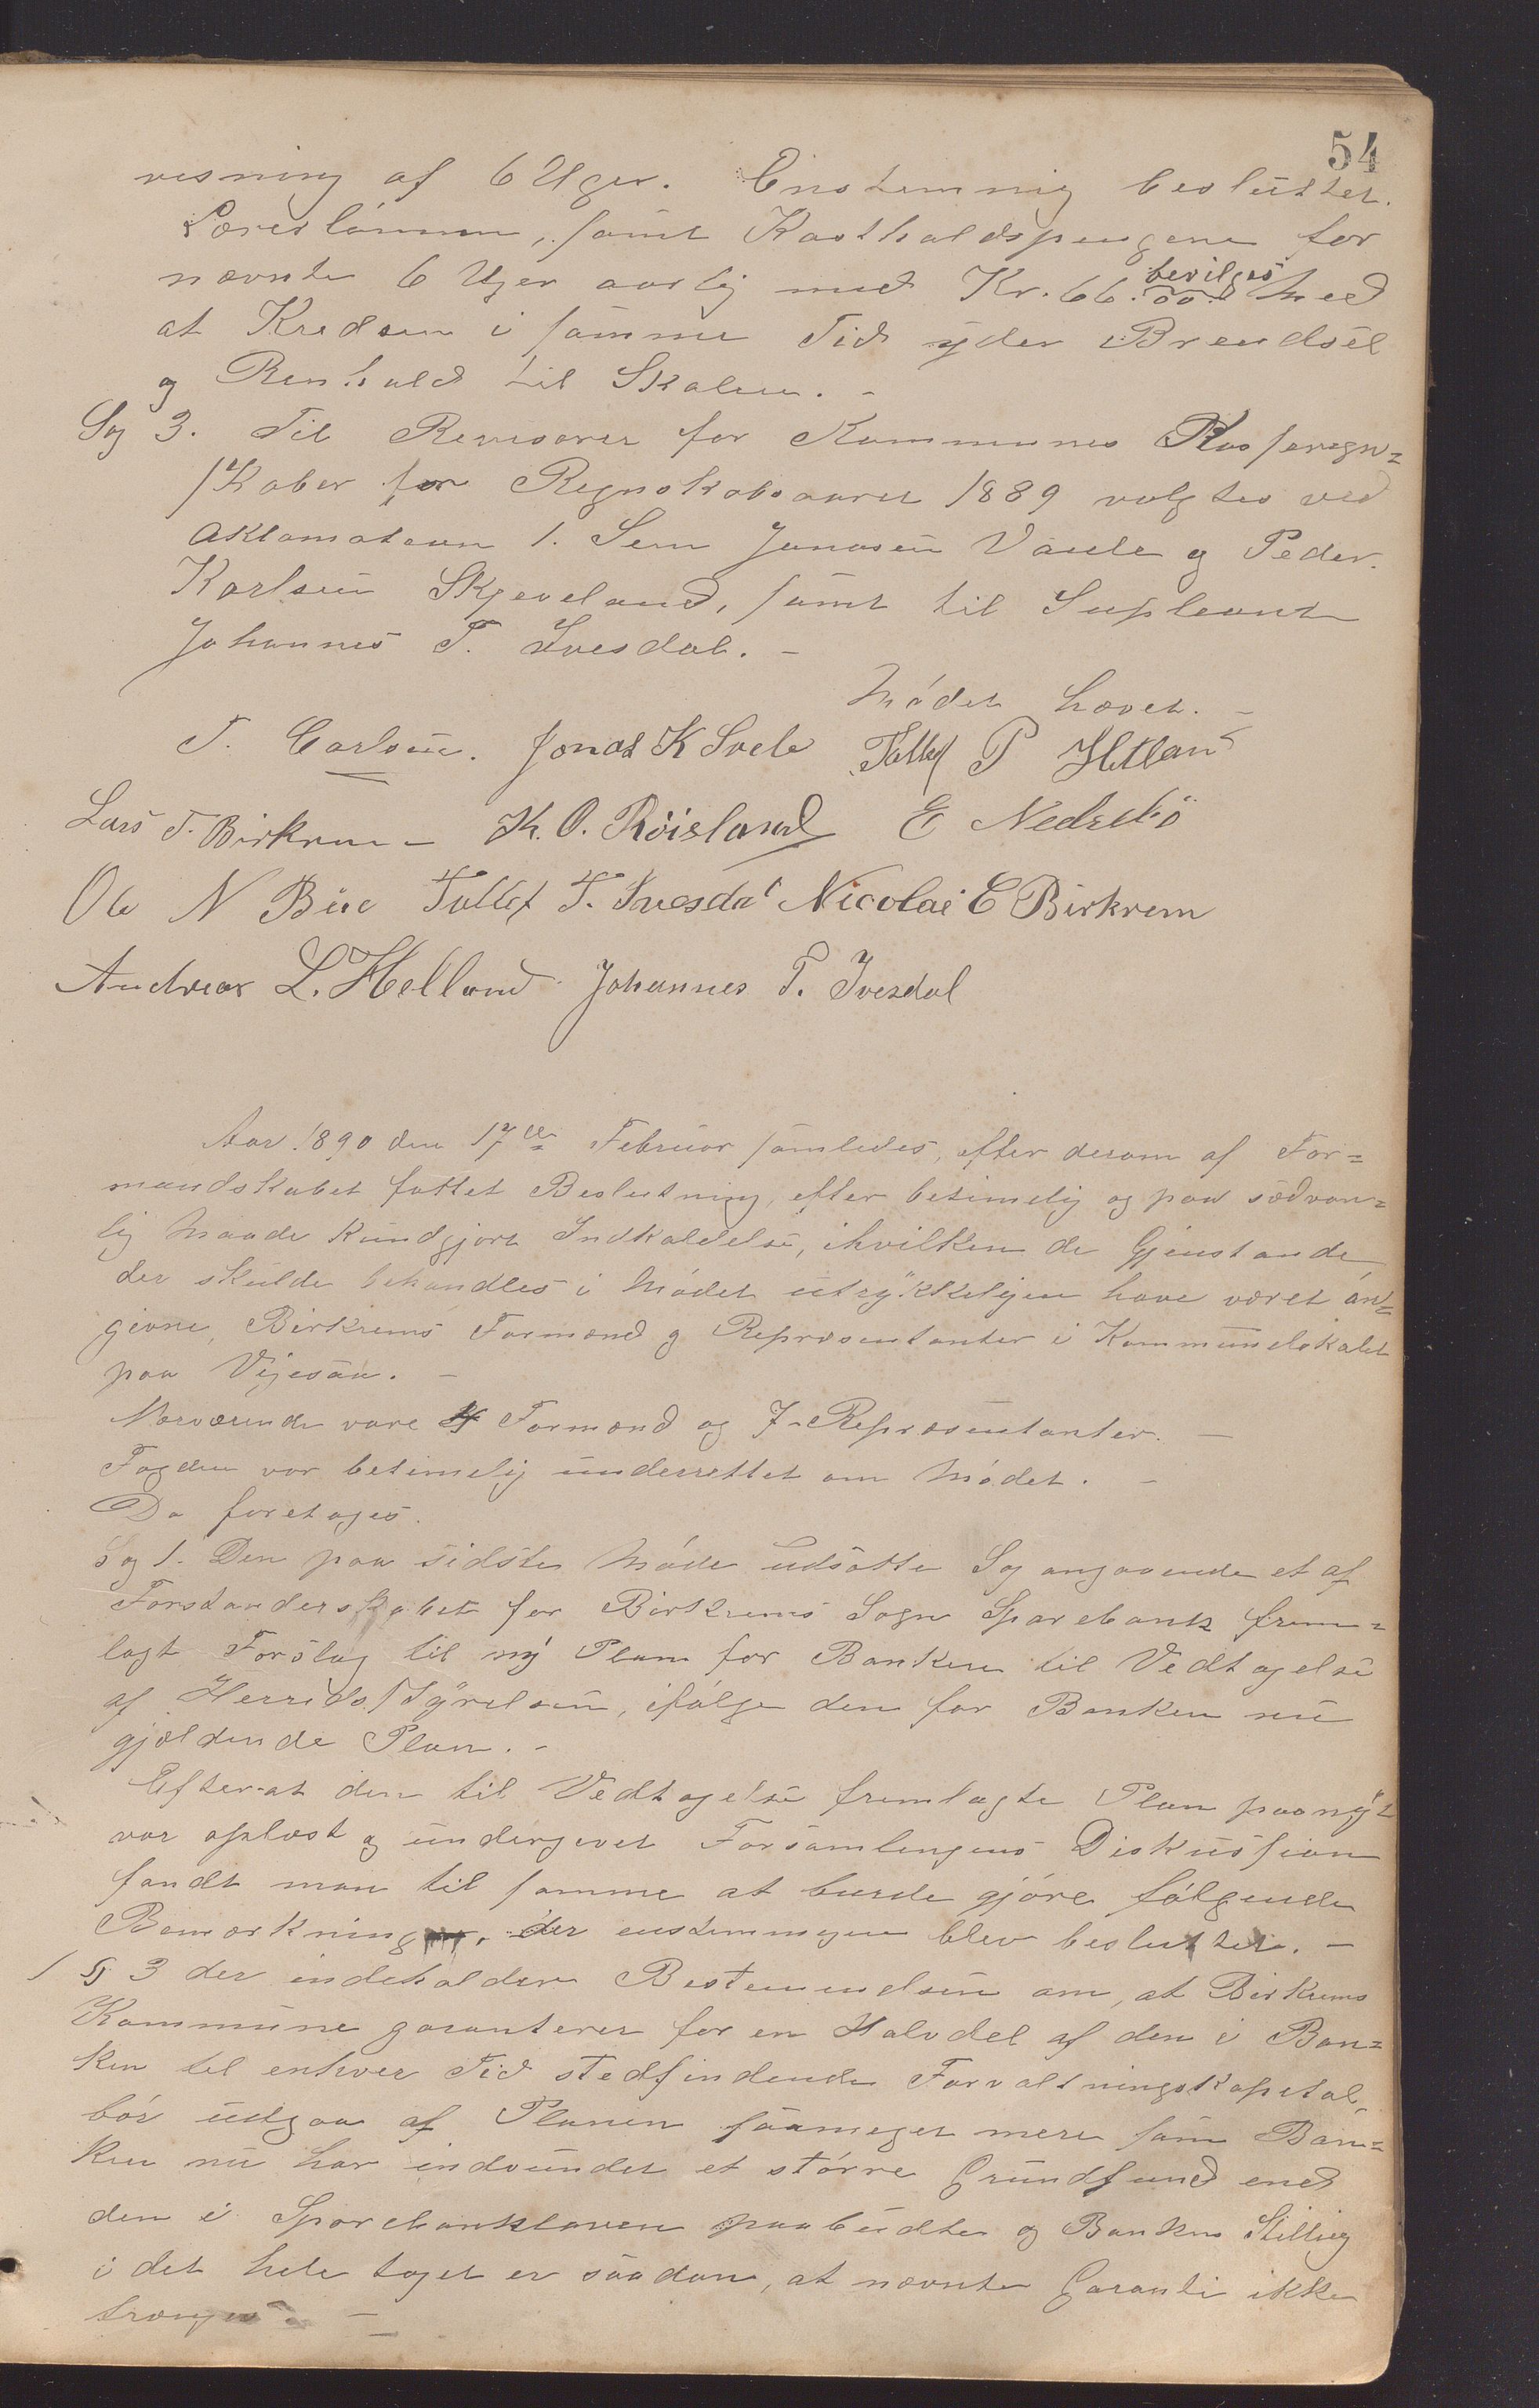 54
visning af 6 Uger. Enstemmig besluttet.
Lærerlönnen, samt Kostholdspengene for
nævnte 6 Uger aarlig med Kr. 66.00 bevilges med
at Kredsen i samme Tid yder Brendsel
og Renhold til Skolen. -
Sag 3. Til Revisorer for Kommunes Kasseregn=
skaber for Regnskabsaaret 1889 valgtes ved
Aklamation 1. Sem Jonasen Vaule og Peder
Karlsen Skjeveland, samt til Supleant
Johannes T. Ivesdal. -
Mödet hævet. -
T. Carlsen. Jonas K Svele Tollef P Hetland
Lars T. Birkrem - K. O. Röisland E Nedrebö
Ole N Bue Tollef T. Ivesdal Nicolai E Birkrem
Andreas L. Helland Johannes T. Ivesdal
Aar 1890 den 17de Februar samledes, efter derom af For=
mandskabet fattet Beslutning, efter betimelig og paa sædvan=
lig Maade kundgjort Indkaldelse, ihvilken de Gjenstande
der skulde behandles i Mödet utrykkeligen have været an=
givne, Birkrems Formænd og Repræsentanter i Kommunelokalet
paa Vigesaa. -
Nærværende vare 4 Formænd og 7 Repræsentanter. -
Fogden var betimelig underrettet om Mödet. -
Da foretages.
Sag 1. Den paa sidste Möde udsatte Sag angaaende et af
Forstanderskabet for Birkrems Sogns Sparebank frem=
lagt Forslag til ny Plan for Banken til Vedtagelse
af Herredsstyrelsen, ifölge den for Banken nu
gjældende Plan. -
Efter at den til Vedtagelse fremlagte Plan paanyt
var oplæst og undergivet Forsamlingens Diskussion
fandt man til samme at burde gjöre fölgende
Bemærkninger, der enstemmigen blev besluttet. -
1 § 3 der indeholder Bestemmelsen om, at Birkrems
Kommune garanterer for en Halvdel af den i Ban=
ken til enhver Tid stedfindende Forvaltningskapital,
bör udgaa af Planen saameget mere som Ban=
ken nu har indvundet et större Grundfund end
den i Sparebankloven paabudte og Bankens Stilling
i det hele taget er saadan, at nævnte Garanti ikke
trænges. -